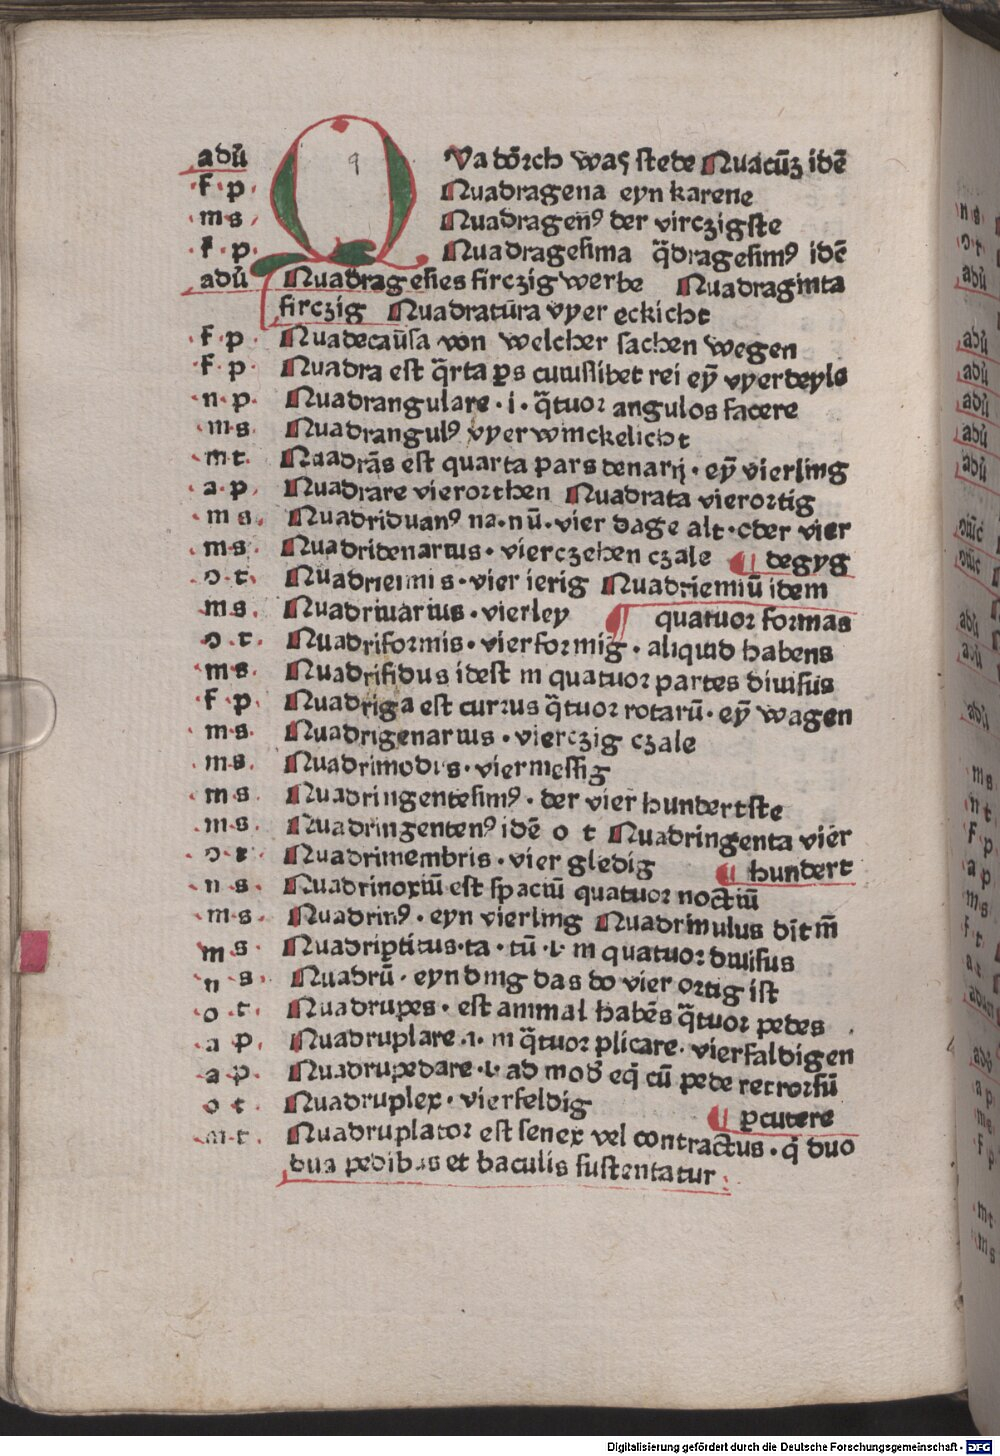 adū Ua dörch was stede Nuacūʒ idē
f p Nuadragena eyn karene
m s Nuadragenꝰ der virczigste
f p Nuadragesima q̄dragesimꝰ idē
adū Nuadragesies firczigwerbe Nuadraginta
firczig Nuadratūra vyer eckicht
f p Nuadecaūsa von welcher sachen wegen
f p Nuadra est q̄rta ꝑs cuiuslibet rei eyn̄ vyerdeyls
n p Nuadrangulare · i · q̄tuor angulos facere
m s Nuadrangulꝰ vyerwinckelicht
m t Nuadrās est quarta pars denarij · eyn̄ vierling
a p Nuadrare vierorthen Nuadrata vierortig
m s Nuadriduanꝰ na · nū · vier dage alt · oder vier
m s Nuadridenarius · vierczehen czale ¶ degyg
o t Nuadriennis · vier ierig Nuadrienniū idem
m s Nuadriuarius · vierley ¶ quatuor formas
o t Nuadriformis · vierformig · aliquid habens
m s Nuadrifidus idest in quatuor partes diuisus
f p Nuadriga est currus q̄tuor rotarū · eyn̄ wagen
m s Nuadrigenarius · vierczig czale
m s Nuadrimodus · viermessig
m s Nuadringentesimꝰ · der vier hundertste
m s Nuadringentenꝰ idē o t Nuadringenta vier
o t Nuadrimembris · vier gledig ¶ hundert
n s Nuadrinoxiū est spaciū quatuor noctiū
m s Nuadrinꝰ · eyn vierling Nuadrimulus dit m̄
m s Nuadriꝑtitus · ta · tū · i · in quatuor diuisus
n s Nuadrū · eyn ding das do vier ortig ist
o t Nuadrupes · est animal habēs q̄tuor pedes
a p Nuadruplare · i · in q̄tuor plicare · vierfaldigen
a p Nuadrupedare · i · ad mod̄ eq̄ cū pede retrorsū
o t Nuadruplex · vierfeldig ¶ ꝑcutere
m t Nuadruplator est senex vel contractus · q̄ duo
bus pedibus et baculis sustentatur
adū
Digitalisierung gefördert durch die Deutsche Forschungsgemeinschaft - DFG